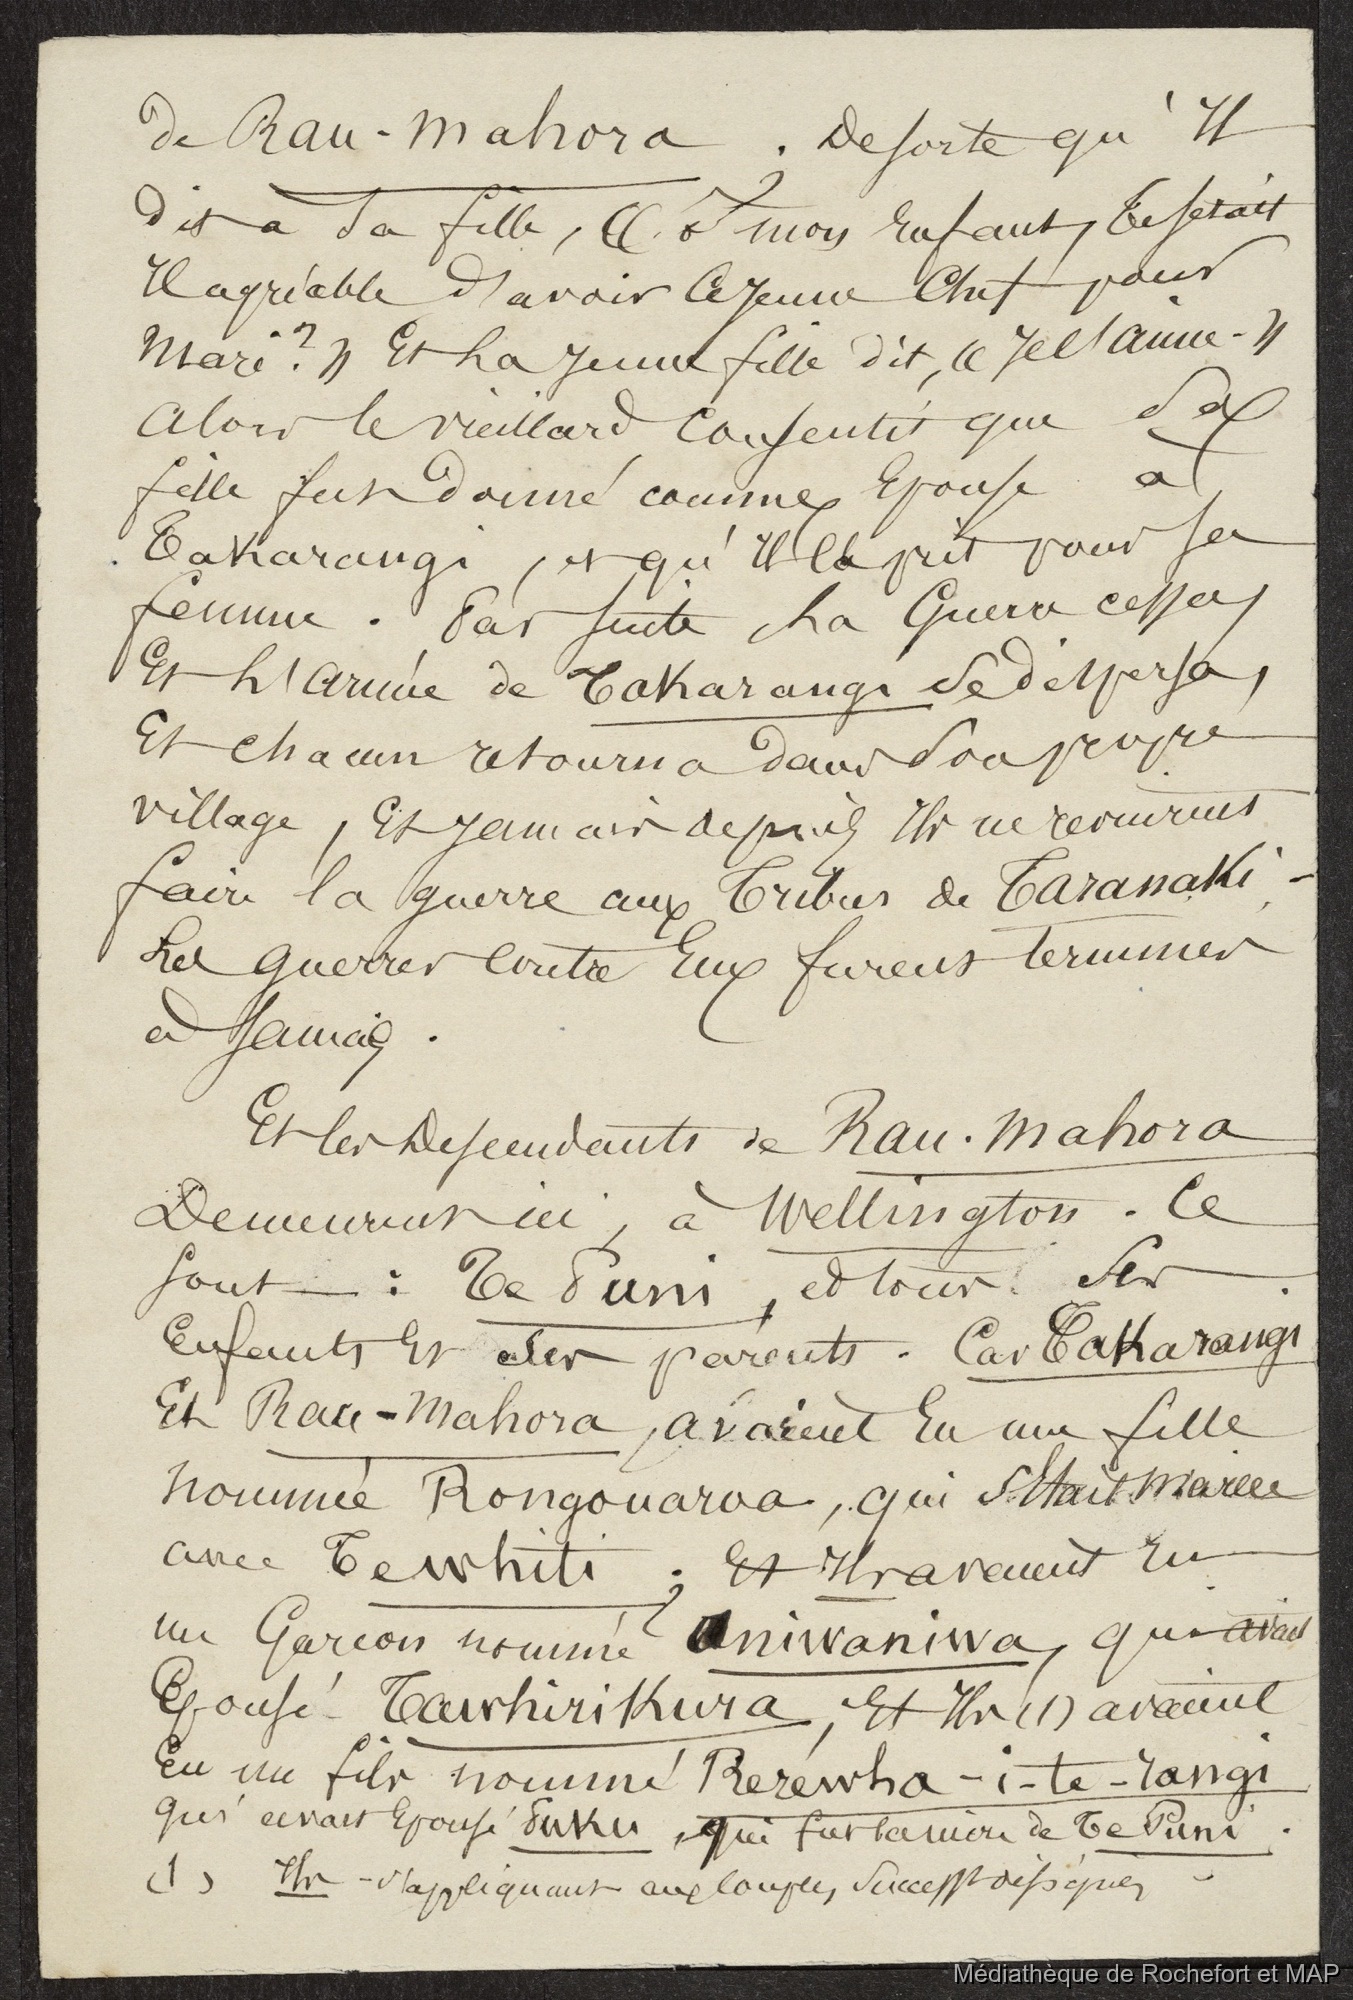 de Rau-Mahora. De sorte qu'Il
dit à sa fille, « ô mon Enfant, te serait
Il agréable d'avoir ce jeune Chef pour
Mari? » Et La jeune fille dit, « Je l'aime - »
Alors le vieillard consentit que sa
fille fut donné comme Epouse à
Takarangi, et qu'Il la prit pour sa
femme. Par suite La Guerre cessa,
Et L'Armée de Takarangi se dispersa,
Et chacun retourna dans son propre
village, Et jamais depuis Ils ne revinrent
faire la guerre aux Tribus de Taranaki -
Les guerres contre Eux furent terminés
à Jamais.
Et les Descendants de Rau-Mahora
Demeurent ici, à Wellington. Ce
sont : Te Puni, et tous ses
Enfants Et ses parents. Car Takarangi
Et Rau-Mahora, avaient Eu une fille
nommée Rongouaroa, qui s'Etait mariée
avec Te Whiti; Et Ils avaient Eu
un Garçon nommé Aniwaniwa, qui avait
Epousé Tawhirikura, Et Ils (1) avaient
Eu un fils nommé Rerewha-i-te-rangi
qui avait Epousé Puku, qui fut la mère de Te Puni.
(1) Ils - s'appliquant aux couples